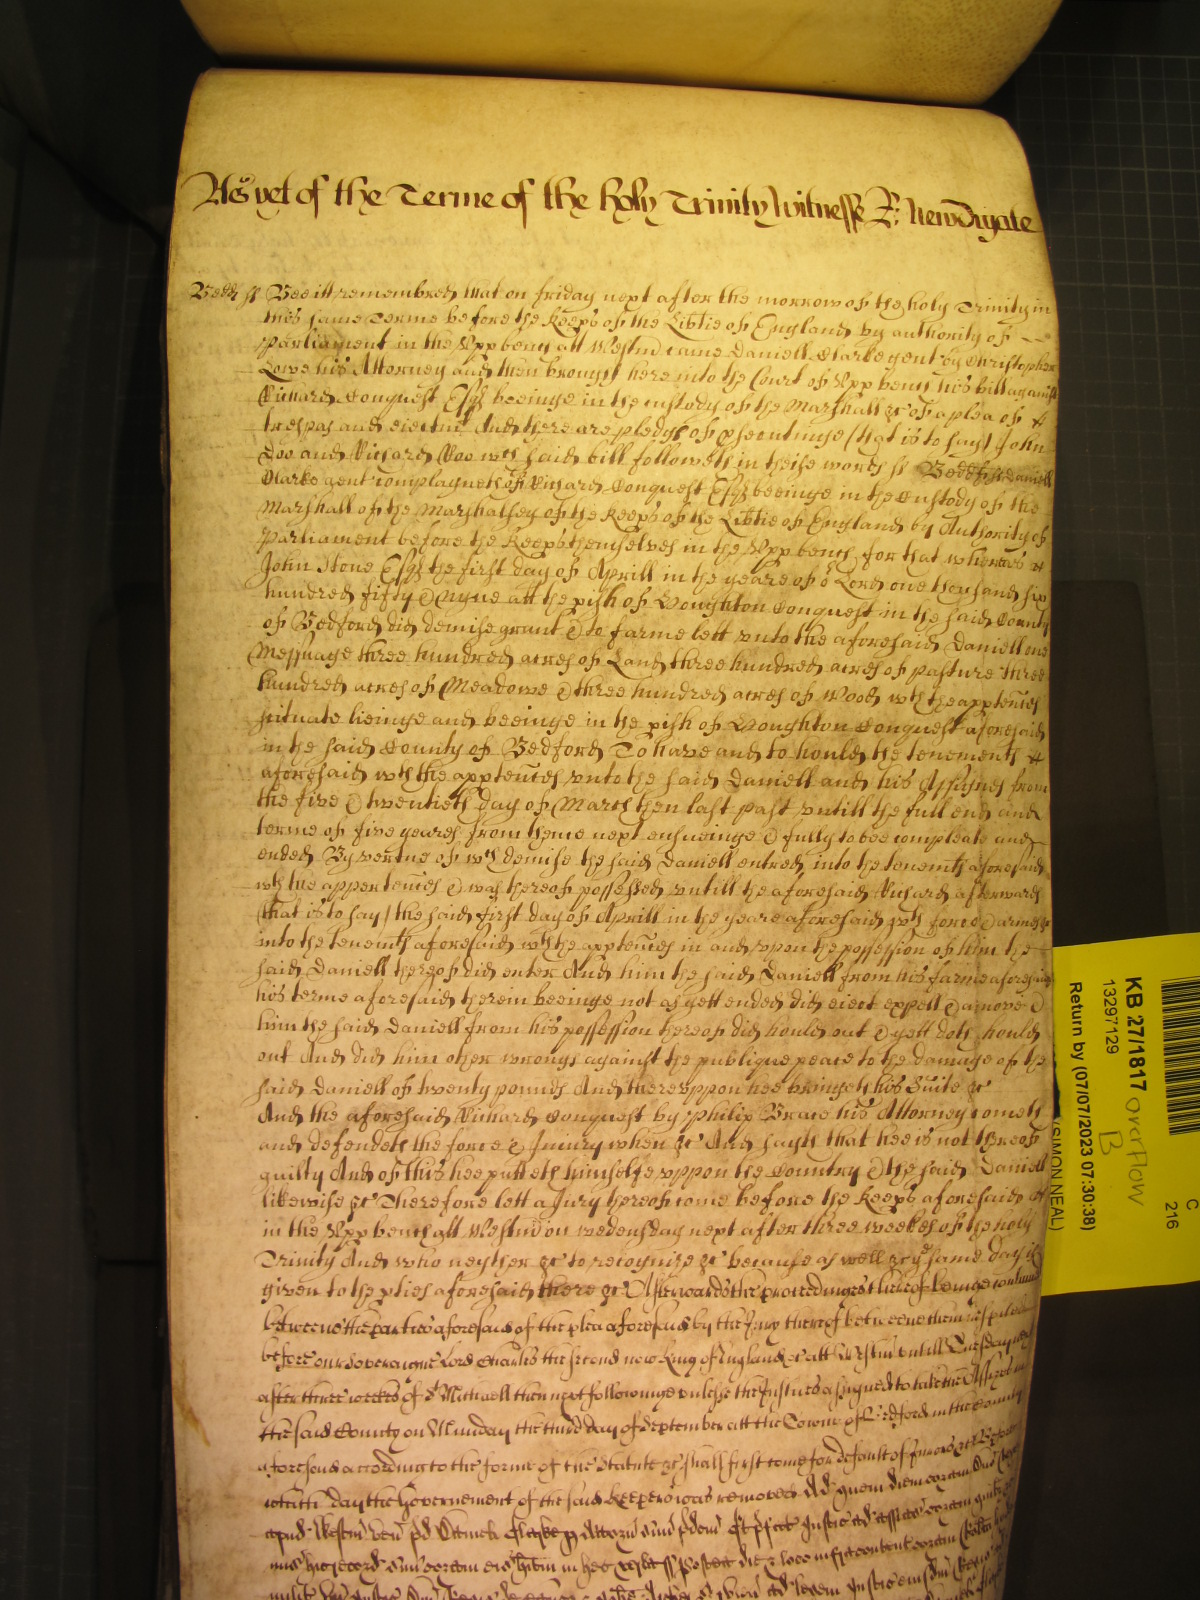 As yet of the Terme of the holy Trinity witnesse R: Newdigate
Bedd ss Bee itt remembred that on friday next after the morrow of the holy Trinity in
this same Terme before the Keeps of the Libtie of England by authority of
Parliament in the Upp bench att Westm came Daniell Clarke gent by Christopher
Lowe his Attorney and then brought here into the Court of Upp bench his bill against
Richard Conquest Esqr beeinge in the custody of the Marshall &c of a plea of
trespas and eiectmt And there are pledgs of psecutinge (that is to say) John
Doo and Richard Roo wch said bill followeth in theise words ss Bedd ss Daniell
Clarke gent complayneth of Richard Conquest Esqr beeinge in the Custody of the
Marshall of the Marshallsey of the Keeps of the Libtie of England by Authority of
Parliament before the Keeps themselves in the Upp bench for that whereas
John Stone Esqr the first day of Aprill in the yeare of or Lord one thousand six
hundred fifty & nyne att the pish of Houghton Conquest in the said County
of Bedford did demise grant & to farme lett unto the aforesaid Daniell one
Messuage three hundred acres of Land three hundred acres of pasture three
hundred acres of Meadowe & three hundred acres of Wood wth the apptences
scituate lieinge and beeinge in the pish of Houghton Conquest aforesaid
in the said County of Bedford To have and to hould the tenements
aforesaid wth the apptences unto the said Daniell and his Assignes from
the five & twentieth day of March then last past untill the full end and
terme of five yeares from thence next ensueinge & fully to bee compleate and
ended By vertue of wch demise the said Daniell entred into the tenemts aforesaid
wth the appertences & was thereof possessed untill the aforesaid Richard afterwards
(that is to say) the said first day of Aprill in the yeare aforesaid wth force & armes &c
into the tenemts aforesaid wth the apptences in and upon the possession of him the
said Daniell thereof did enter And him the said Daniell from his farme aforesaid
his terme aforesaid therein beeinge not as yett ended did eiect expell & amove &
him the said Daniell from his possession thereof did hould out & yett doth hould
out And did him other wrongs against the publique peace to the damage of the
said Daniell of twenty pounds And thereuppon hee bringeth his Suite &c
And the aforesaid Richard Conquest by Philip Brace his Attorney cometh
and defendeth the force & Iniury when &c And saith that hee is not thereof
guilty And of this hee putteth himselfe uppon the Country & the said Daniell
likewise &c Therefore lett a Jury thereof come before the Keeps aforesaid
in the Upp bench att Westm on wedensday next after three weekes of the holy
Trinity And who neyther &c to recognize &c because as well &c the same day is
given to the pties aforesaid there &c Afterwards the proceedinges thereof beinge continued
betweene the parties aforesaid of the plea aforesaid by the Jury thereof betweene them
before our Soveraigne Lord Charles the second now King of England &c att Westm untill Tuesday next
after three weekes of St Michaell then next followinge unlesse the Justices assigned to take the Assizes in
the said County on Munday the third day of September att the Towne of Bedford in the County
aforesaid according to the forme of the Statute &c shall first come for default of Jurors &c Before
which day the Governement of the said Keepers was removed Ad quem diem coram
apud Westm ven pd Daniel Clarke p Attorn suum pdcm Et pfat Justic ad assisas coram quibus
KB 27/1817 overflow
B
13297129
Return by (07/07/2023 07:30:38)
(SIMON NEAL)
C
216